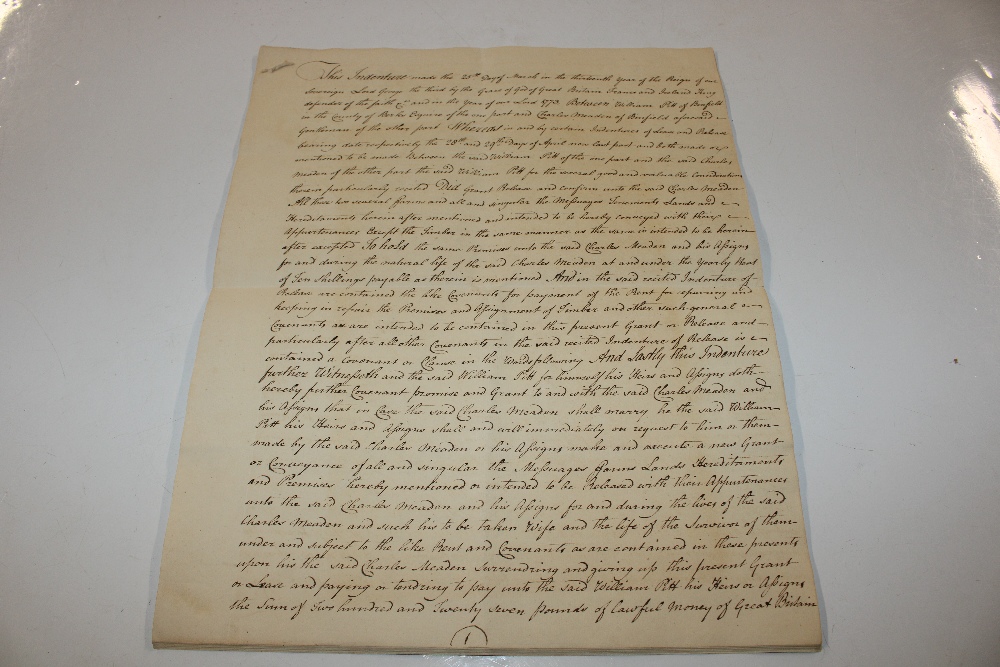 This Indenture made the 25th Day of March in the thirteenth Year of the Reign of our
Sovereign Lord George the third by the Grace of God of Great Britain France and Ireland King
defender of the faith &c and in the Year of our Lord 1773. Between William Pitt of Binfield
in the County of Berks Esquire of the one part and Charles Meaden of Binfield aforesaid
Gentleman of the other part Whereas in and by certain Indentures of Lease and Release
bearing date respectively the 28th and 29th Days of April now last past and both made or
mentioned to be made Between the said William Pitt of the one part and the said Charles
Meaden of the other part the said William Pitt for the several good and valuable Considerations
therein particularly recited Did Grant Release and confirm unto the said Charles Meaden
All those two several farms and all and singular the Messuages Tenements Lands and
Hereditaments herein after mentioned and intended to be hereby conveyed with their
Appurtenances Except the Timber in the same manner as the same is intended to be herein
after excepted To hold the same Premises unto the said Charles Meaden and his Assigns
for and during the natural life of the said Charles Meaden at and under the Yearly Rent
of Ten shillings payable as therein is mentioned. And in the said recited Indenture of
Release are contained the like Covenants for payment of the Rent for repairing and
keeping in repair the Premises and Assignment of Timber and other such general
Covenants as are intended to be contained in this present Grant or Release and
particularly after all other Covenants in the said recited Indenture of Release is
contained a Covenant or Clause in the Words following And Lastly this Indenture
further Witnesseth and the said William Pitt for himself his Heirs and Assigns doth
hereby further Covenant promise and Grant to and with the said Charles Meaden and
his Assigns that in Case the said Charles Meaden shall marry he the said William
Pitt his Heirs and Assigns shall and will immediately on request to him or them
made by the said Charles Meaden or his Assigns make and execute a new Grant
or Conveyance of all and singular the Messuages farms Lands Hereditaments
and Premises hereby mentioned or intended to be Released with their Appurtenances
unto the said Charles Meaden and his Assigns for and during the lives of the said
Charles Meaden and such his to be taken Wife and the life of the Survivor of them
under and subject to the like Rent and Covenants as are contained in these presents
upon his the said Charles Meaden Surrendring and giving up this present Grant
or Lease and paying or tendring to pay unto the said William Pitt his Heirs or Assigns
the Sum of Two hundred and Twenty seven pounds of lawful Money of Great Britain
1